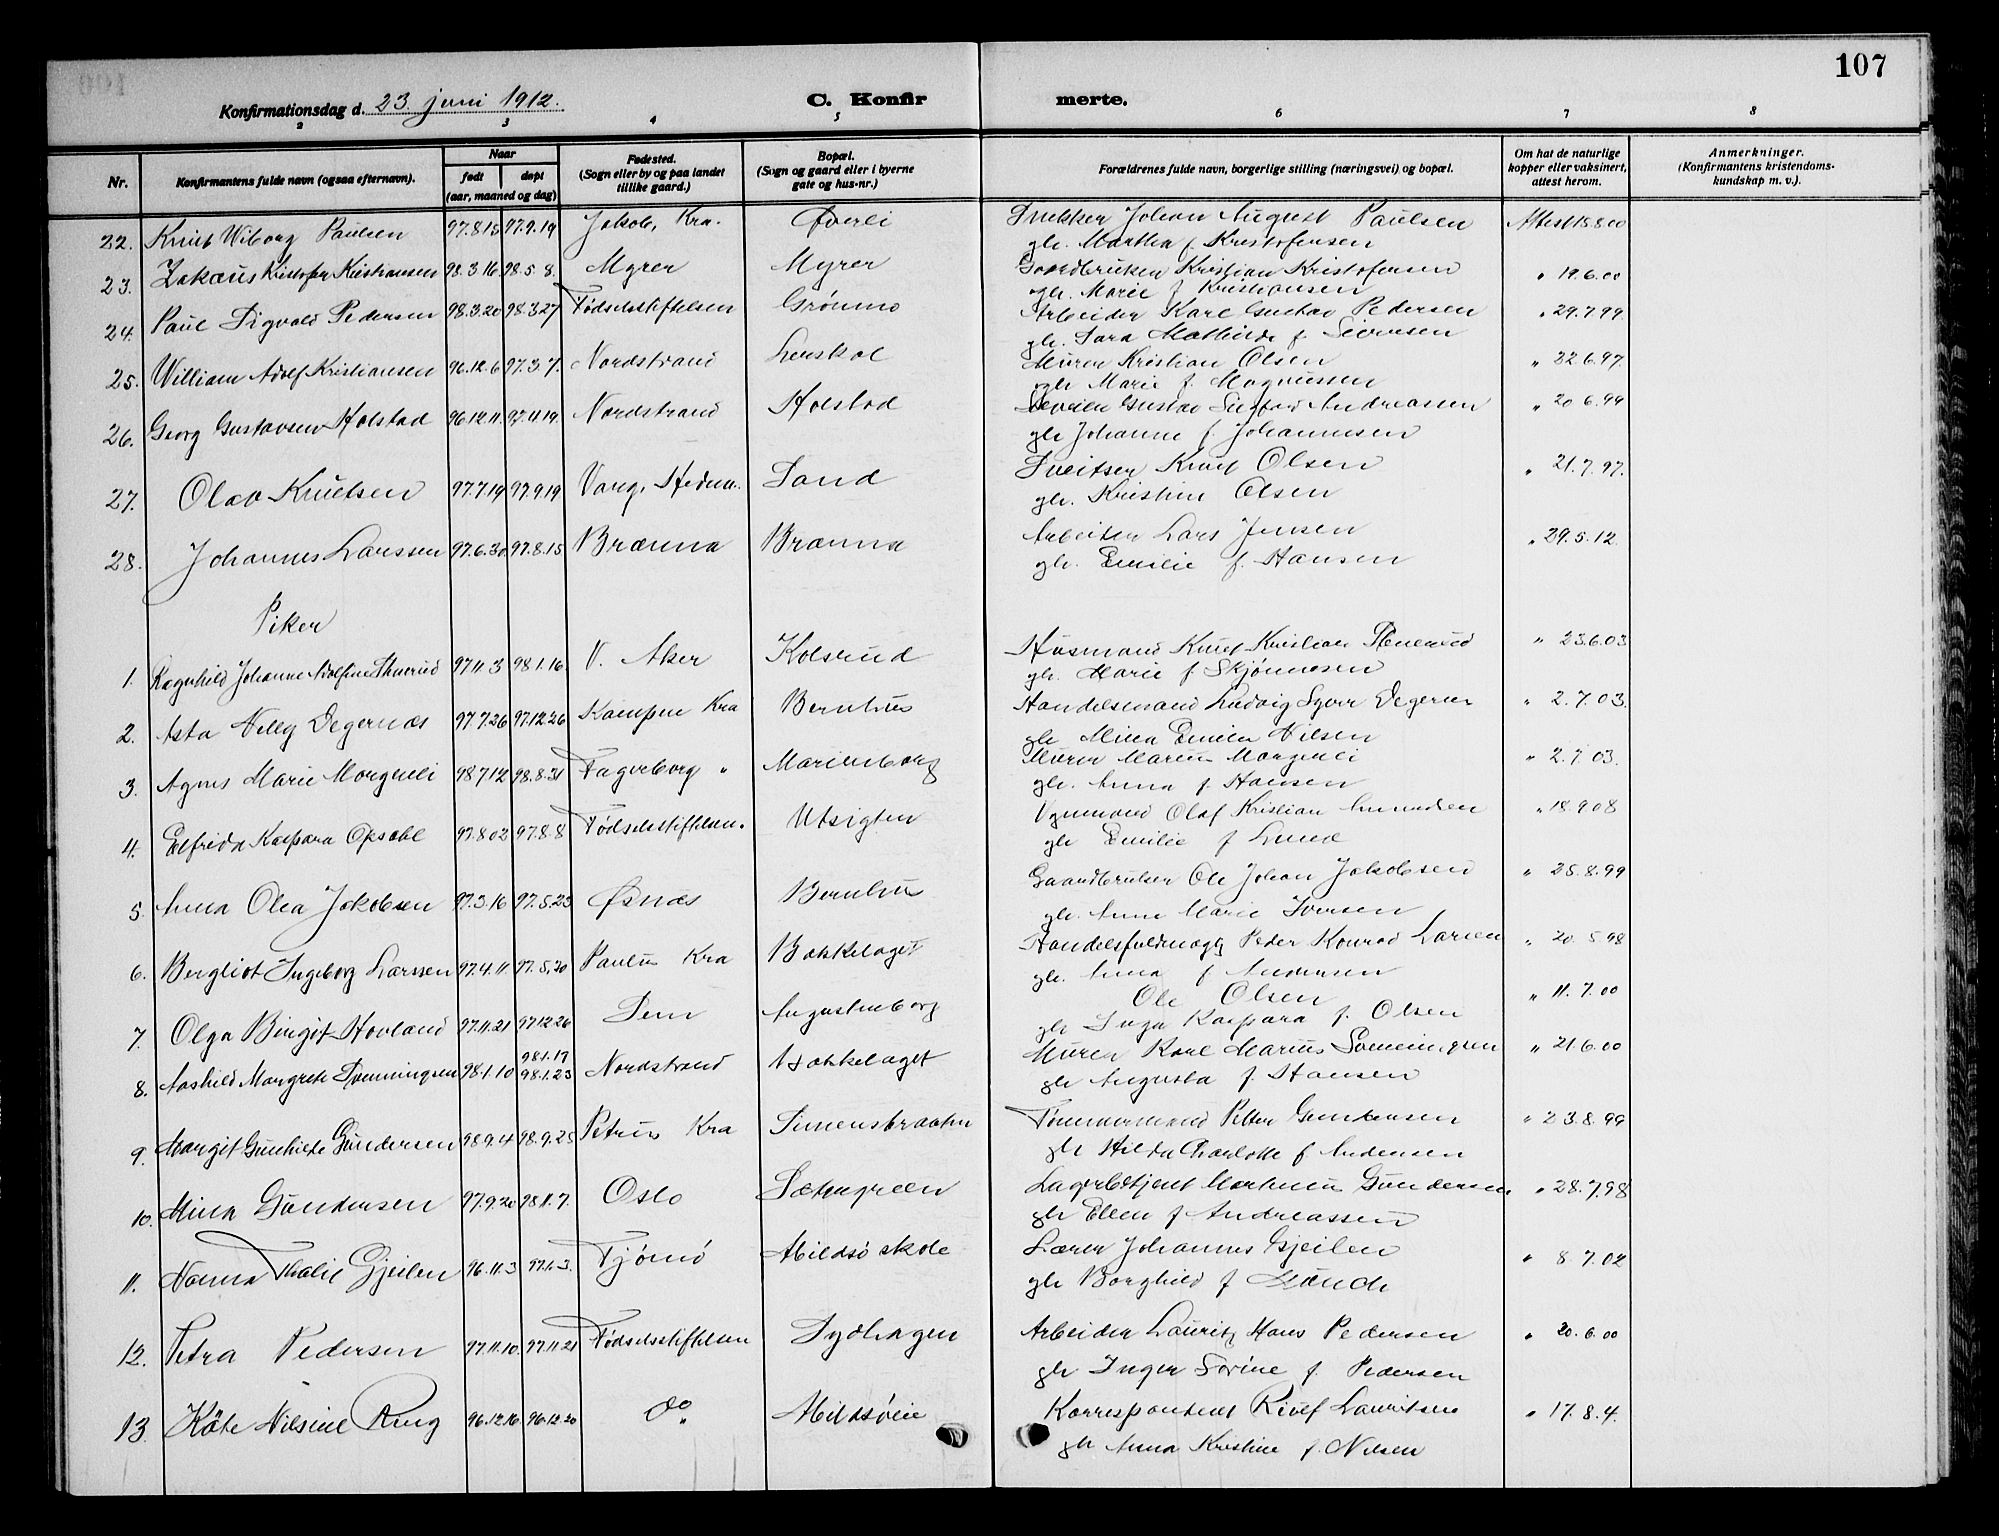 107
Konfirmationsdag d. 23. juni 1912.
C. Konfir merte.
2 3 4 5 6 7 8
Nr.
Konfirmantens fulde navn (ogsaa efternavn).
Naar
født døpt
(aar, maaned og dag)
Fødested.
(Sogn eller by og paa landet
tillike gaard.)
Bopæl.
(Sogn og gaard eller i byerne
gate og hus-nr.)
Forældrenes fulde navn, borgerlige stilling (næringsvei) og bopæl.
Om hat de naturlige
kopper eller vaksinert,
attest herom.
Anmerkninger.
(Konfirmantens kristendoms-
kundskap m. v.).
22. Knut Wiborg Paulsen 97.8.15 97.9.19 Jakob, Kra. Øverli Snekker Johan August Paulsen Attest 15.8.00
gh. Martha f. Kristofersen
23. Zakæus Kristofer Kristiansen 98.3.16 98.5.8. Myrer Myrer Gaardbruker Kristian Kristofersen " 19.6.00
gh. Marie f Kristiansen
24. Paul Sigvald Pedersen 98.3.20 98.3.27 Fødselsstiftelsen Grønmo Arbeider Karl Gustav Pedersen " 29.7.99
gh. Sara Mathilde f.
25. William Adolf Kristiansen 96.12.6 97.3.7. Nordstrand Murer Kristian Olsen " 22.6.97.
gh Marie f. Magnussen
26. Georg Gustavsen Holstad 96.12.11. 97.4.19. Nordstrand Holstad Gustav Andreassen " 20 6.99
gh Johanne f. Johannesen
27. Olav Knutsen 97.7.19 97.9.19 Vang, Hedm. Sand Sveitser Knut Olsen " 21.7.97.
gh. Kristine Olsen
28. Johannes Larssen 97.6.30 97.8.15 Brænna Brænna Arbeider Lars Jensen " 29.5.12.
gh. Emilie f. Hansen
Piker
1. Ragnhild Johanne Adolfine 97.11.3 98.1.16. V. Aker Kolsrud Husmand Knut Kristian " 23.6.03
gh. Marie f. Skjønnesen
2. Asta Nelly Degernæs 97.7.26 97.12.26 Kampen Kra Bernhus Handelsmand Ludvig Degernes " 2.7.03.
gh Mina Emilie Nilsen
3. Agnes Marie Morgneli 98.7.12 98.8.31 Fagerborg " Marienborg Murer Marius Morgneli " 2.7.03.
gh. Anna f. Hansen
4. Elfrida Kaspara Opsahl 97.8.02 97.8.8 Fødselsstiftelsen. Utsigten Vognmand Olaf Kristian " 18.9.08
gh Emilie f Lund
5. Anna Olea Jakobsen 97.3.16 97.5.23 Øsnæs Bernhus Gaardbruker Ole Johan Jakobsen " 25.8.99
gh. Anne Marie Iversen
6. Bergliot Ingeborg Larssen 97.4.11 97.5.20 Paulus Kra Bækkelaget Handelsfuldmægt Peder Konrad Larsen " 20. 5.98
gh. Anna f Andersen
7. Olga Birgit Hovland 97.11.21 97.12.26 Augustenborg Ole Olsen " 11.7.00
gh Inga Kaspara f. Olsen
8. Aashild Margrete Svenningsen 98.1.10 98.1.17 98.1.23 Nordstrand Bækkelaget Murer Karl Marius Svenningsen " 21.6.00
gh Augusta f. Hansen
9. Margit Gunhilde Gundersen 98.9.4 98.9.25 Petrus Kra Simensbraaten Tømmermand Petter Gundersen " 23.8.99
gh Hilda Charlotte f Andersen
10. Mina Gundersen 97.9.20 98.11.7. Oslo Sætergreen Lagerbetjent Martinius Gundersen " 28.7.98
gh Ellen f Andreassen
11. Nanna Thalie Gjeilen 96.11.3 97.1.3. Tjømø Mildsø skole Lærer Johannes Gjeilen " 8.7.02
gh Borghild f Lunde
12. Petra Pedersen 97.11.10. 97.11.21 Fødselsstiftelsen Sydhagen Arbeider Lauritz Hans Pedersen " 20.6.00
gh Inger Sorine f. Pedersen
13. Käte Nilsine Ring 96.12.16. 96.12.20 do Mildsøveie Korrespondent Lauritsen " 17.8.4.
gh Anna Kristine f. Nilsen